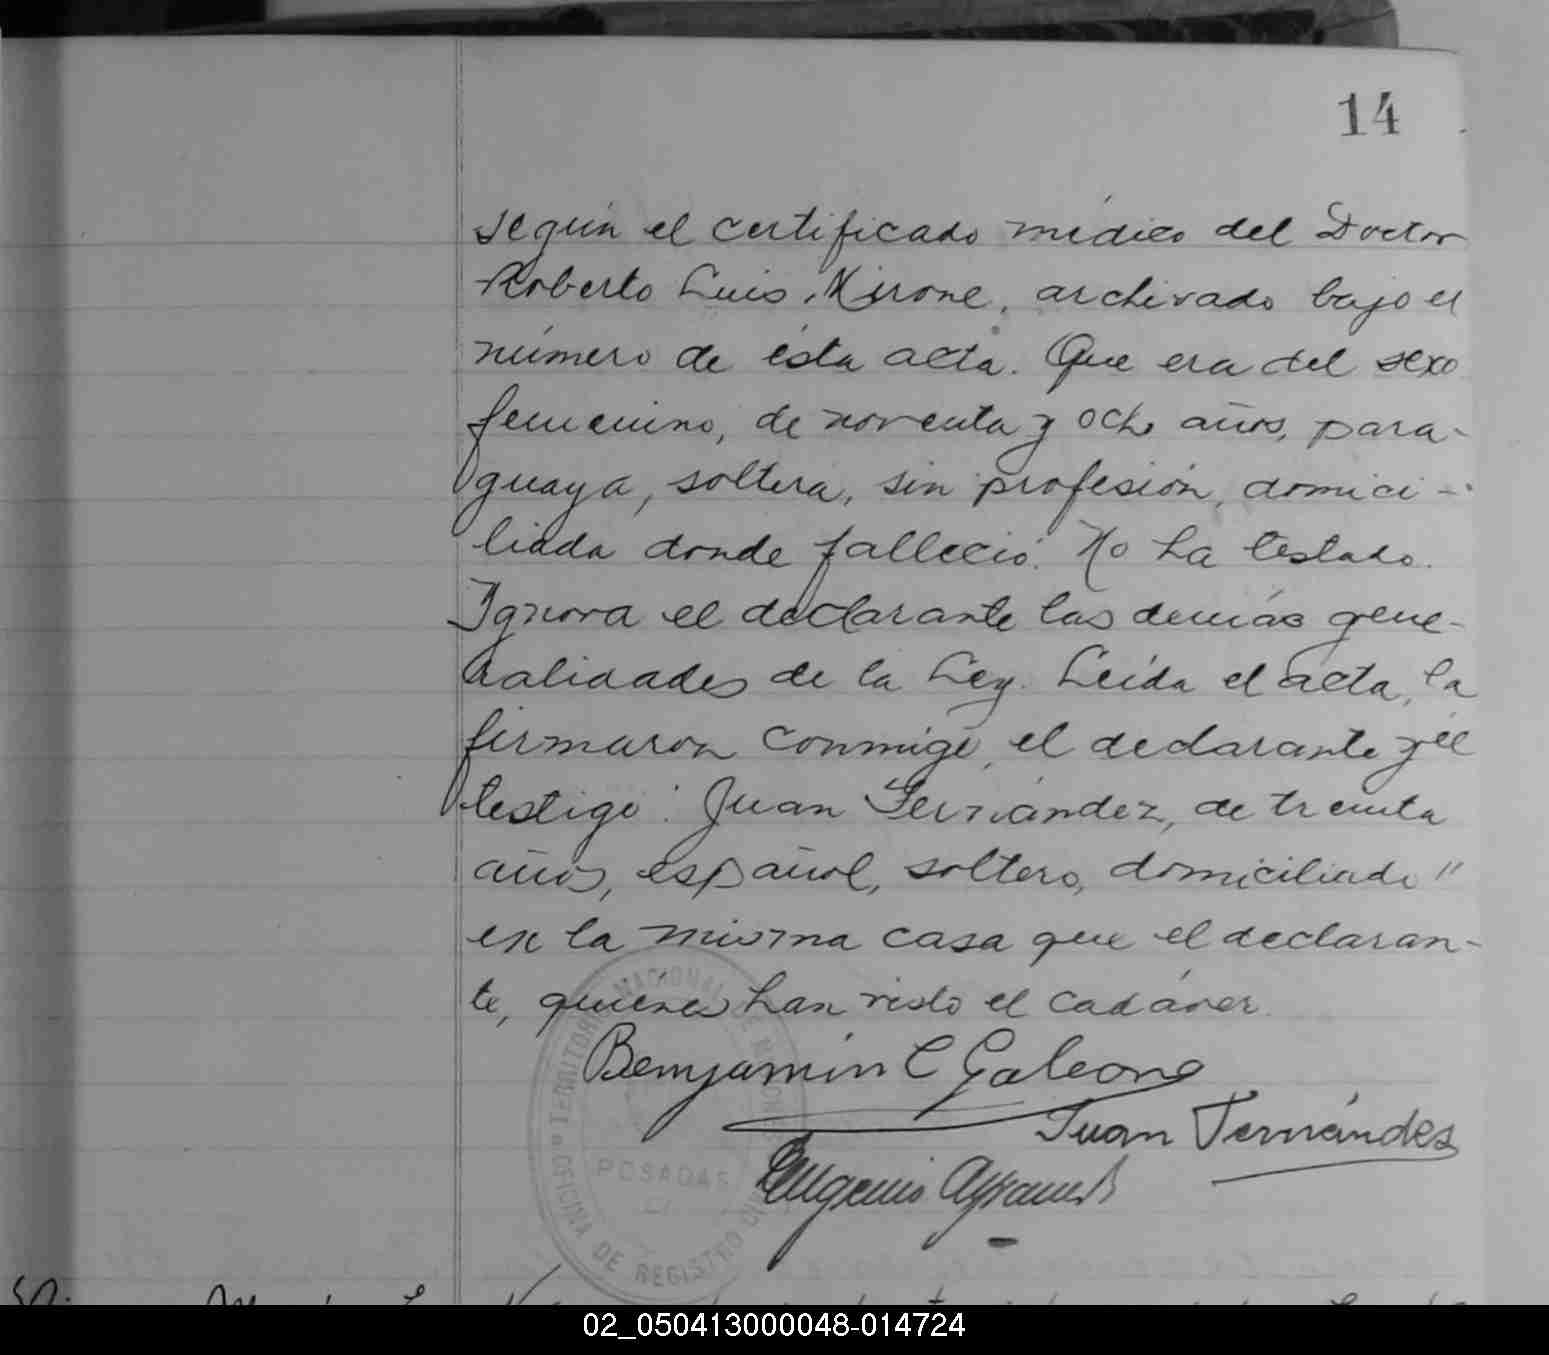 14
según el certificado médico del Doctor
Roberto Luis Mirone, archivado bajo el
número de ésta acta. Que era del sexo
femenino, de noventa y ocho años, para-
guaya, soltera, sin profesión, domici-
liada donde falleció. No ha testado.
Ignora el declarante las demás gene-
ralidades de la Ley. Leída el acta, la
firmaron conmigo, el declarante y el
testigo: Juan Fernández, de treinta
años, español, soltero, domiciliado "
en la misma casa que el declaran-
te, quienes han visto el cadáver.
Benjamín C Galeano
Juan Fernández
Eugenio
TERRITORIO NACIONAL DE MISIONES
POSADAS
OFICINA DE REGISTRO CIVIL
02_050413000048-014724